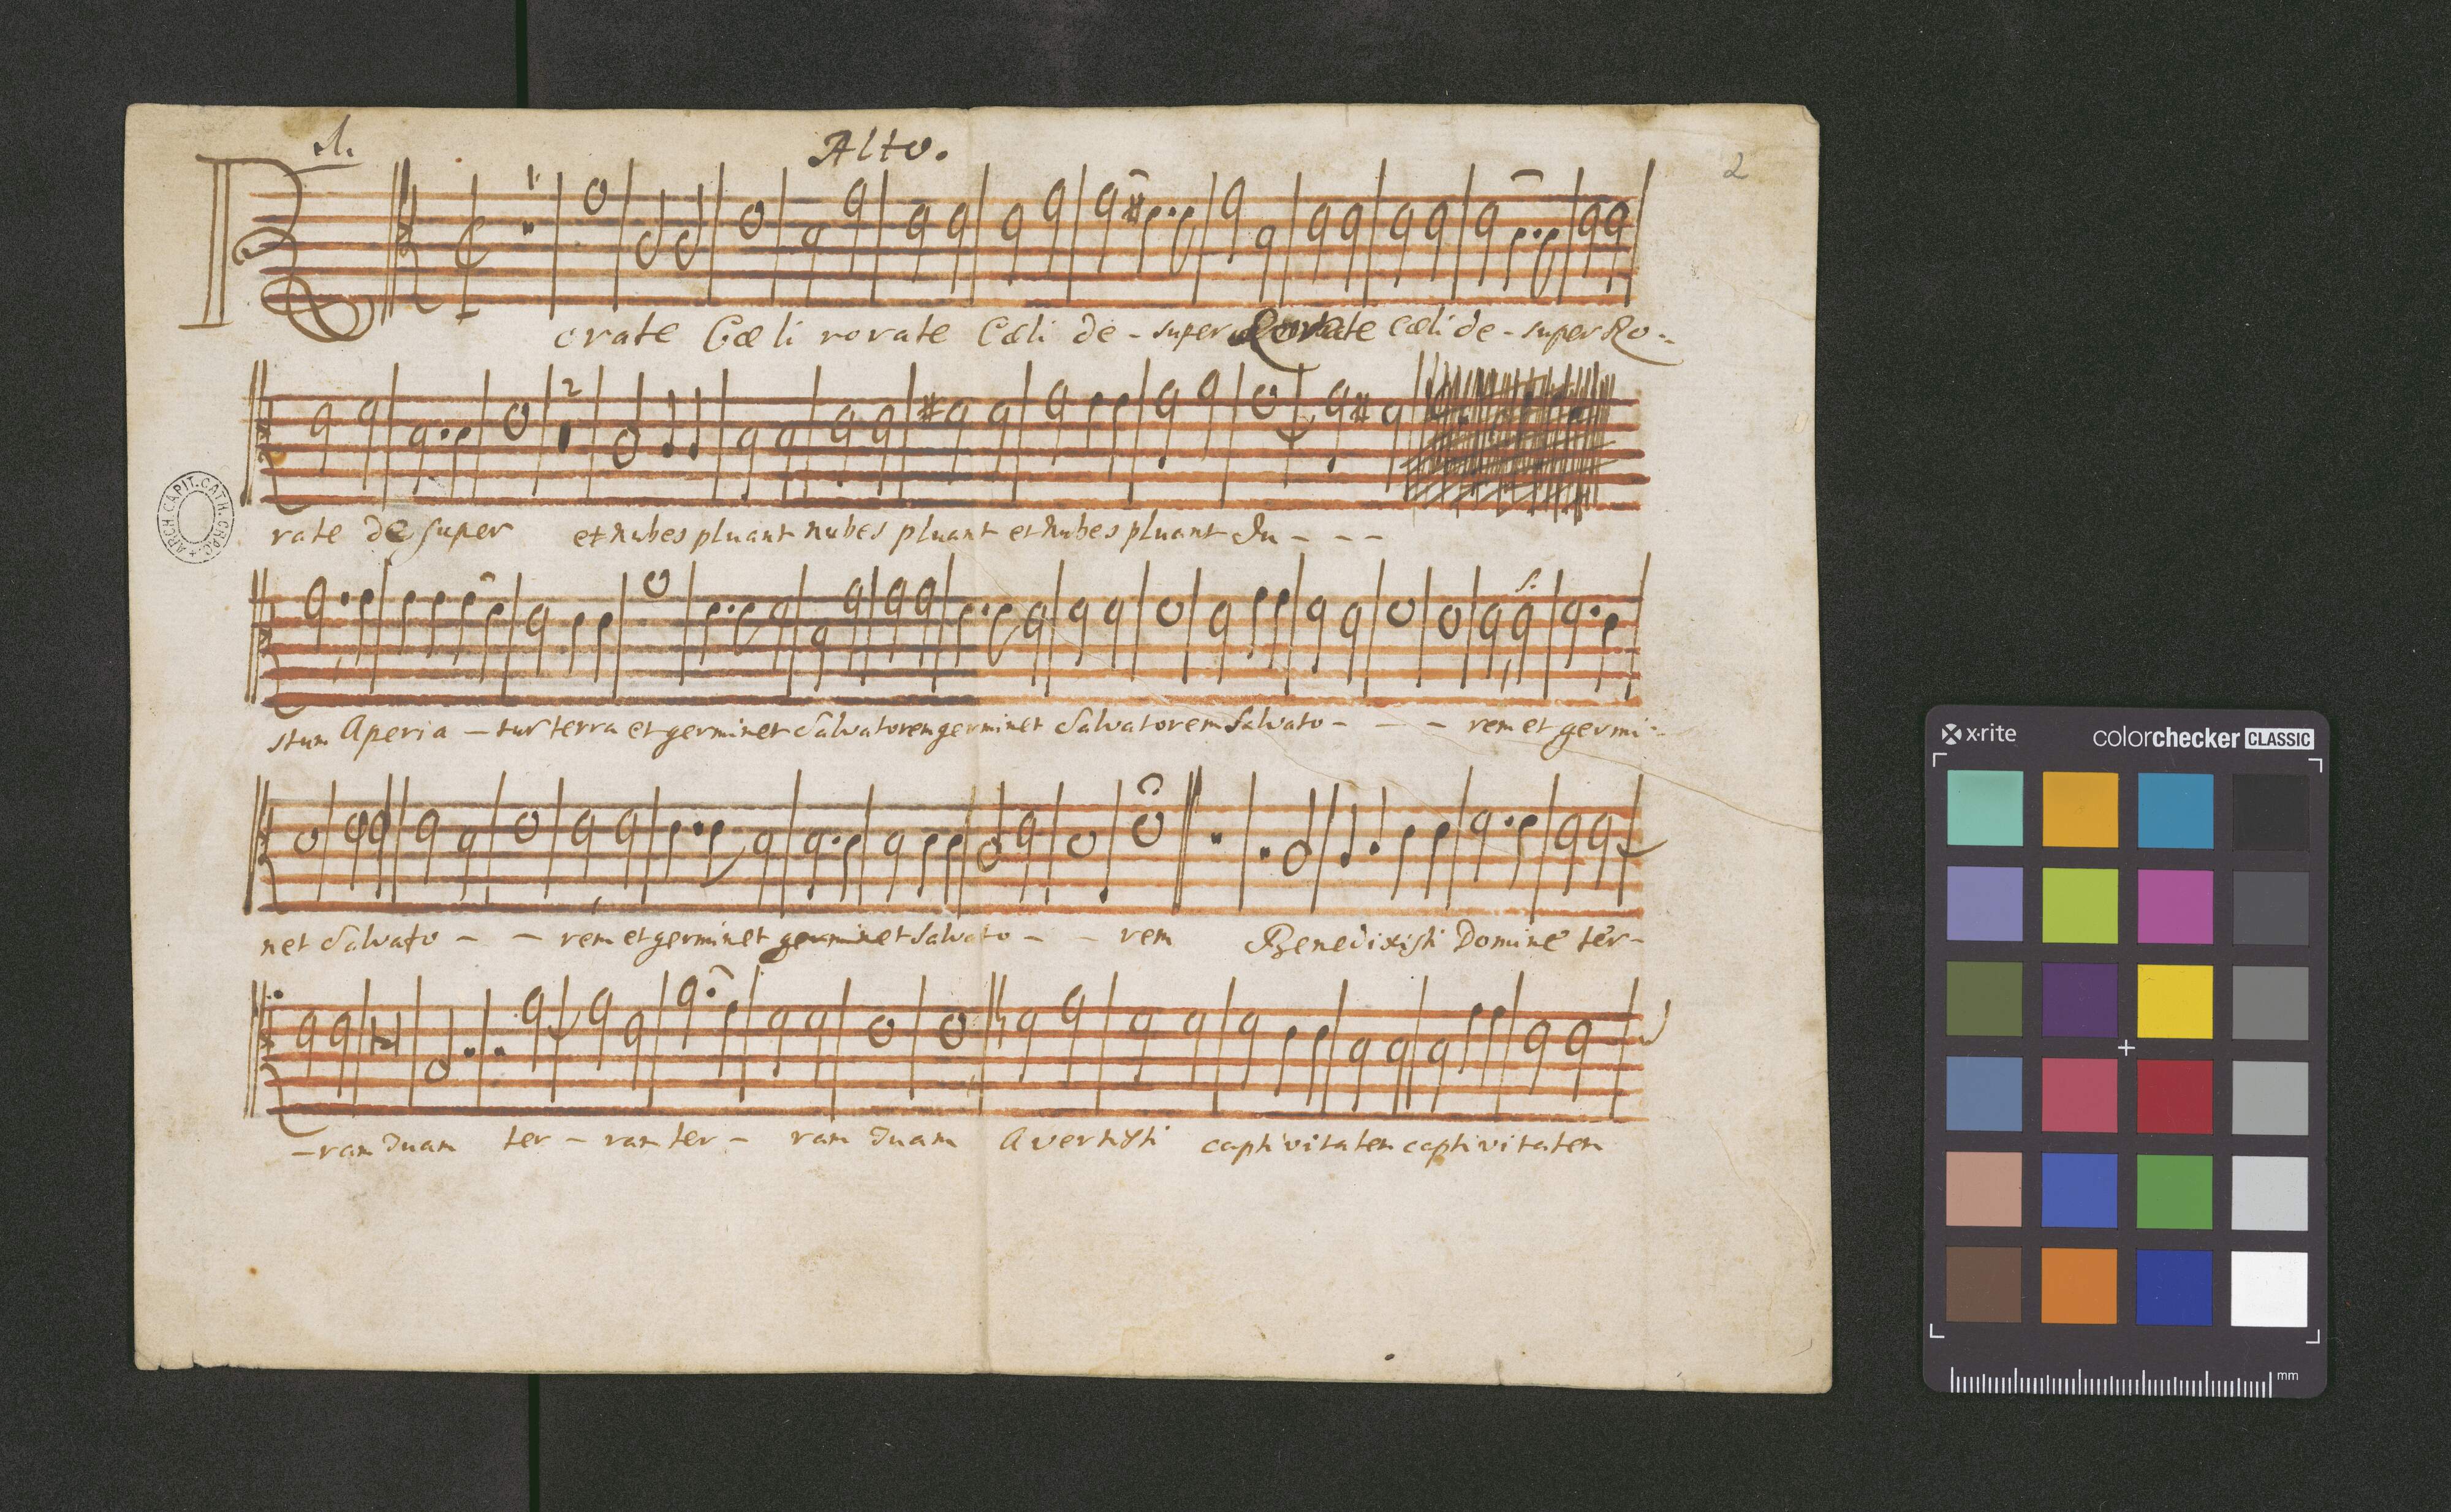 1. Alto. 2
Rorate Cæli rorate Cæli de - super Rorate cæli de - super Ro -
rate de super et nubes pluant nubes pluant et nubes pluant Ju - - -
stum Aperia - tur terra et germinet Salvatorem germinet Salvatorem Salvato - - - rem et germi -
net Salvato - - rem et germinet germinet Salvato - - rem Benedixisti Domine ter -
- ram Tuam ter - ram ter - ram Tuam Avertisti captivitatem captivitatem
ARCH. CAPIT. CATH. CRAC.
x-rite colorchecker CLASSIC
mm